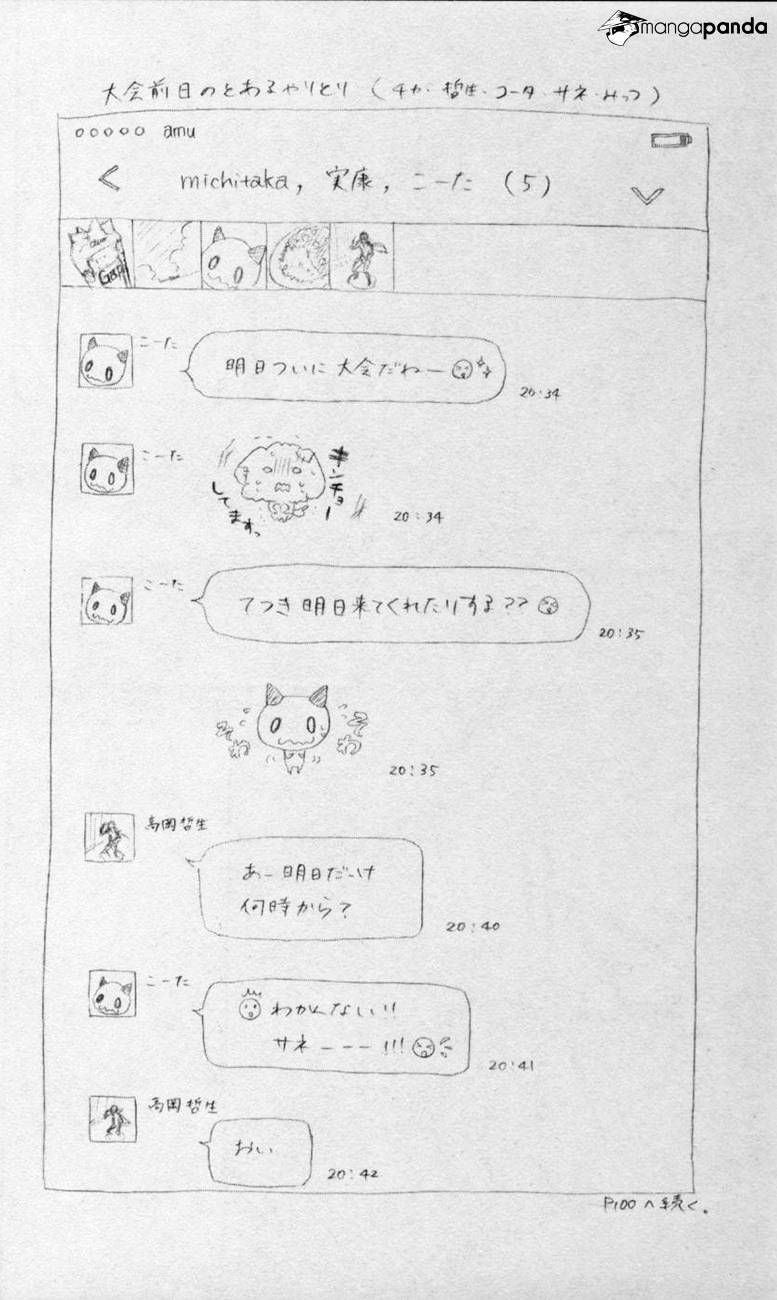 mangapanda
大会前日のとあるやりとり（チカ・哲生・コータ・サネ・みっつ）
amu
< michitaka, 実康, こーた (5)
Gaph
こーた
明日ついに大会だねー
20:34
こーた
キンチョー
してますっ
20:34
こーた
てつき明日来てくれたりする??
20:35
そわ
そわ
20:35
高岡哲生
あー明日だっけ
何時から？
20:40
こーた
わかんない!!
サネーーー!!!
20:41
高岡哲生
おい
20:42
P100へ続く。